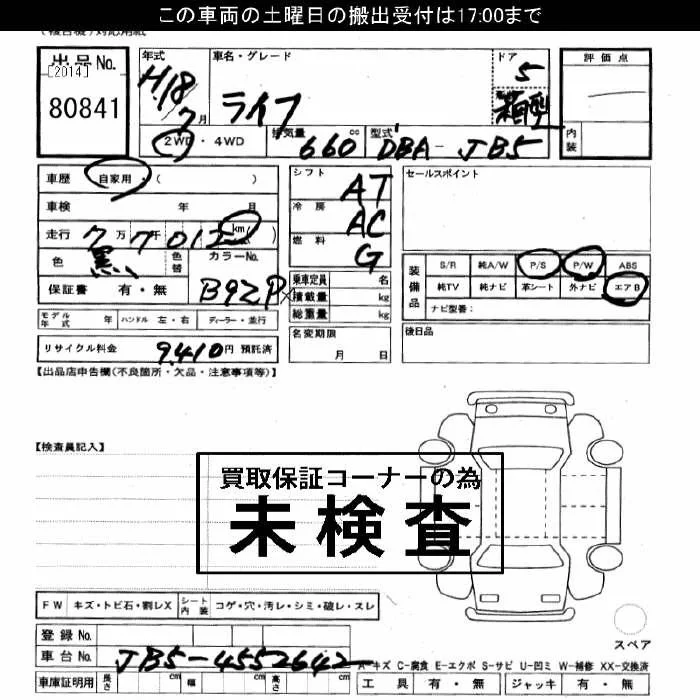 この車両の土曜日の搬出受付は17:00まで
出品No.
[2014]
80841
年式
H18
7月
車名・グレード
ライフ
ドア
5
箱型
評価点
内装
2WD・4WD
排気量
660 cc
型式
DBA-JB5
車歴 自家用 ( )
車検 年 月
走行 7万7千012km( )
色 黒
色替
カラーNo.
B92P
保証書 有・無
シフト
AT
冷房
AC
燃料
G
乗車定員 名
積載量 kg
総重量 kg
セールスポイント
装備品
S/R 純A/W P/S P/W ABS
純TV 純ナビ 革シート 外ナビ エアB
ナビ型番:
モデル年式 年 ハンドル 左・右 ディーラー・並行
名変期限
月 日
後日品
リサイクル料金 9,410円 預託済
【出品店申告欄(不良箇所・欠品・注意事項等)】
【検査員記入】
買取保証コーナーの為
未検査
FW キズ・トビ石・割レX シート内装 コゲ・穴・汚レ・シミ・破レ・スレ
スペア
登録No.
車台No. JB5-4552642
A-キズ C-腐食 E-エクボ S-サビ U-凹ミ W-補修 XX-交換済
車庫証明用 長さ cm 幅 cm 高さ cm
工具 有・無 ジャッキ 有・無